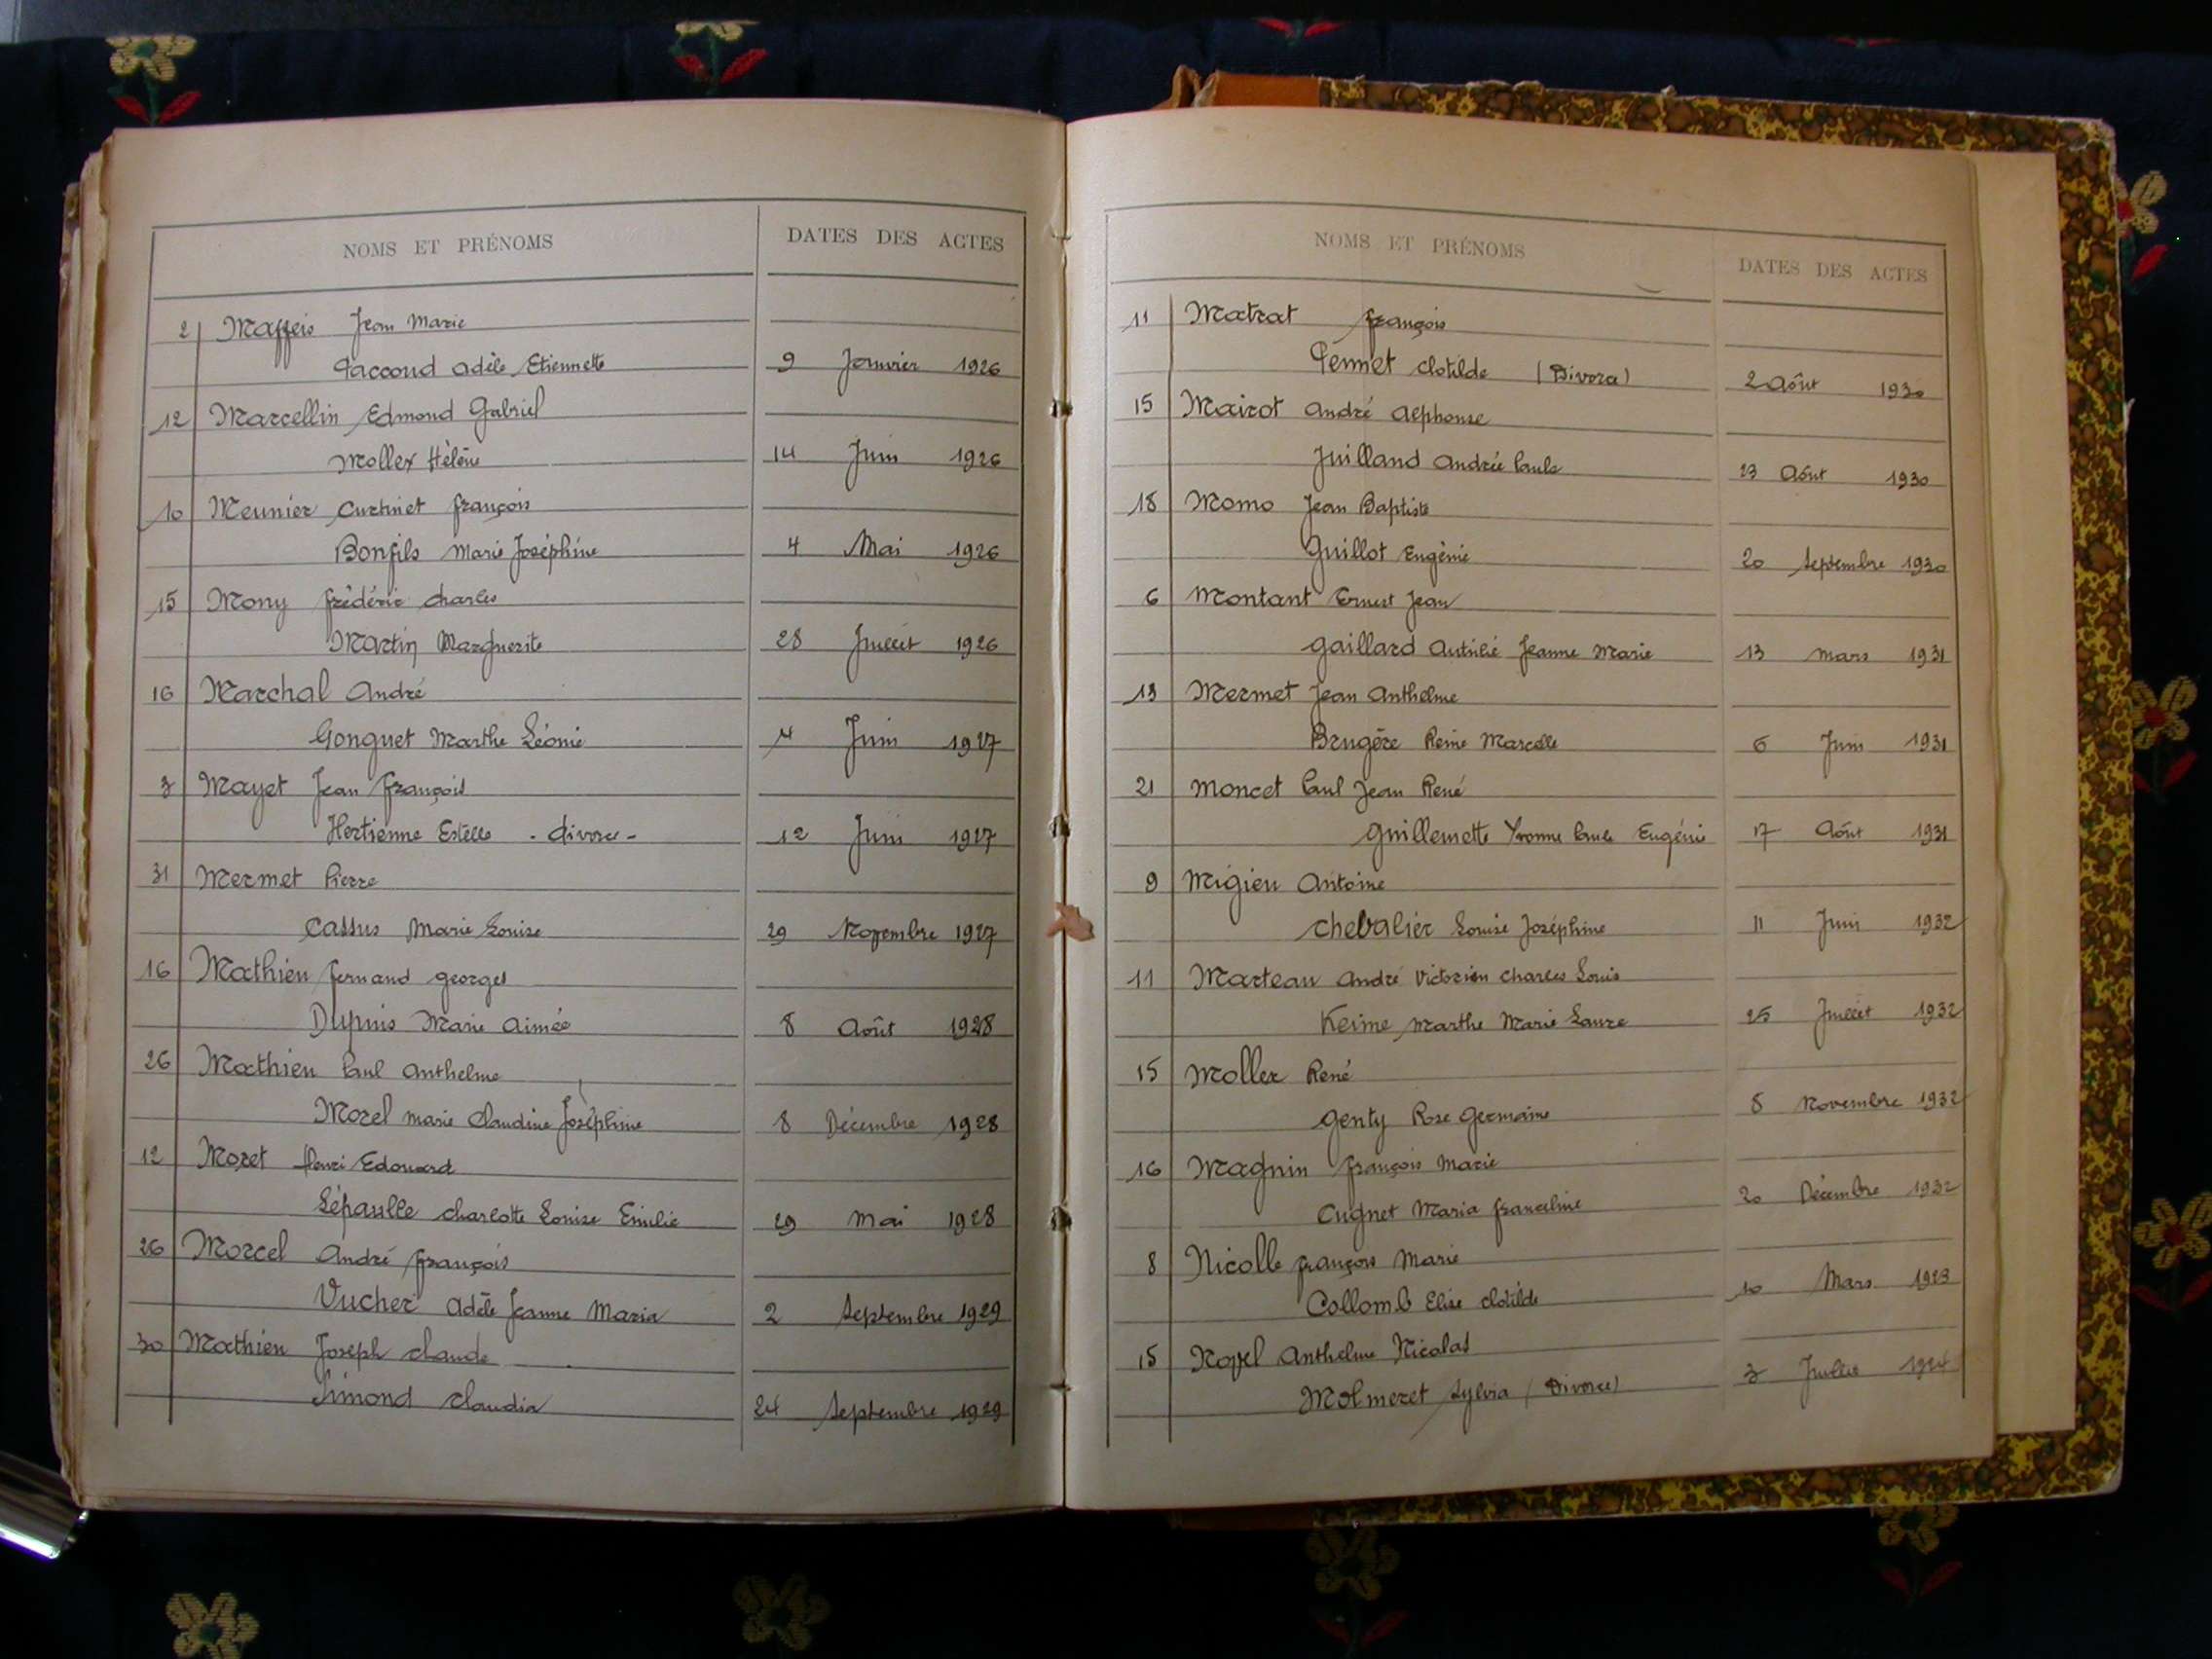 NOMS ET PRÉNOMS DATES DES ACTES
2 Maffeis Jean Marie
Paccoud Adèle Etiennette 9 Janvier 1926
12 Marcellin Edmond Gabriel
Mollex Hélène 14 Juin 1926
10 Meunier Curtinet françois
Bonfils Marie Joséphine 4 Mai 1926
15 Mony frédéric Charles
Martin Marguerite 28 Juillet 1926
16 Marchal André
Gonguet Marthe Léonie 4 Juin 1927
3 Mayet Jean François
Hertienne Estelle - divorce - 12 Juin 1927
31 Mermet Pierre
Cassus Marie Louise 29 Novembre 1927
16 Mathieu fernand georges
Dupuis Marie Aimée 8 Août 1928
26 Mathieu Paul Anthelme
Morel Marie Claudine Joséphine 8 Décembre 1928
12 Moret Henri Edouard
Lépaulle Charlotte Louise Emilie 29 Mai 1928
26 Morcel André françois
Vucher Adèle Jeanne Maria 2 Septembre 1929
30 Mathieu Joseph Claude
Simond Claudia 24 Septembre 1929
NOMS ET PRÉNOMS DATES DES ACTES
11 Matrat françois
Pennet Clotilde (Divorce) 2 Aôut 1930
15 Mairot André Alphonse
Juilland Andrée Paule 23 Aôut 1930
18 Momo Jean Baptiste
Guillot Eugénie 20 Septembre 1930
6 Montant Ernest Jean
Gaillard Jeanne Marie 13 Mars 1931
13 Mermet Jean Anthelme
Brugère Reine Marcelle 6 Juin 1931
21 Moncet Paul Jean René
Guillemette Yvonne Paule Eugénie 17 Aôut 1931
9 Migieu Antoine
Chevalier Louise Joséphine 11 Juin 1932
11 Marteau André Victorien Charles Louis
Keime Marthe Marie Laure 25 Juillet 1932
15 Mollex René
Genty Rose Germaine 8 Novembre 1932
16 Magnin françois Marie
Cugnet Maria franceline 20 Décembre 1932
8 Nicolle françois Marie
Collomb Elise Clotilde 10 Mars 1923
15 Novel Anthelme Nicolas
Molmeret Sylvia (Divorce) 3 Juillet 1924